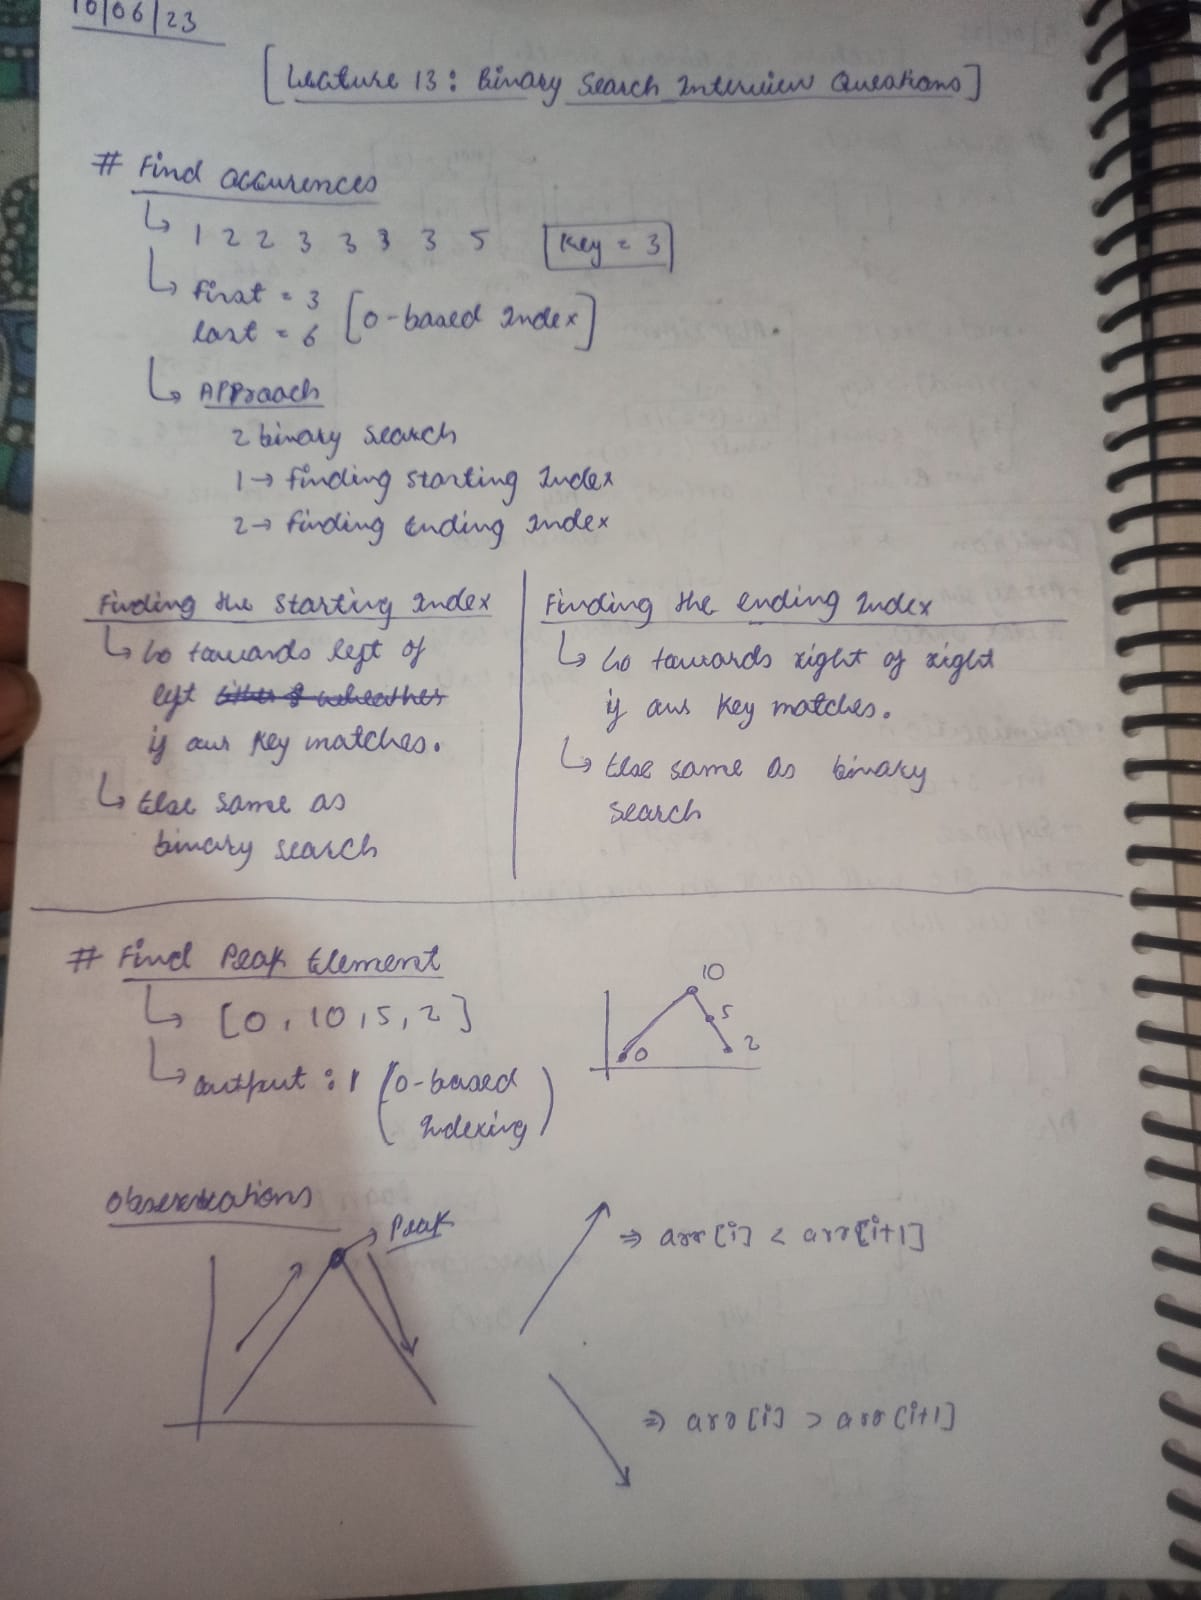 10/06/23
[Lecture 13: Binary Search Interview Questions]
# Find occurences
↳ 1 2 2 3 3 3 3 5 Key = 3
↳ first = 3
last = 6 [0-based Index]
↳ Approach
2 binary search
1 → finding starting Index
2 → finding Ending Index
Finding the Starting Index
↳ Go towards left of
left
if our key matches.
↳ Else same as
binary search
Finding the ending Index
↳ Go towards right of right
if our key matches.
↳ Else same as binary
search
# Find Peak Element
↳ [0, 10, 5, 2]
↳ output : 1 (0-based
Indexing)
10
5
0
2
Observations
Peak
⇒ arr[i] < arr[i+1]
⇒ arr[i] > arr[i+1]